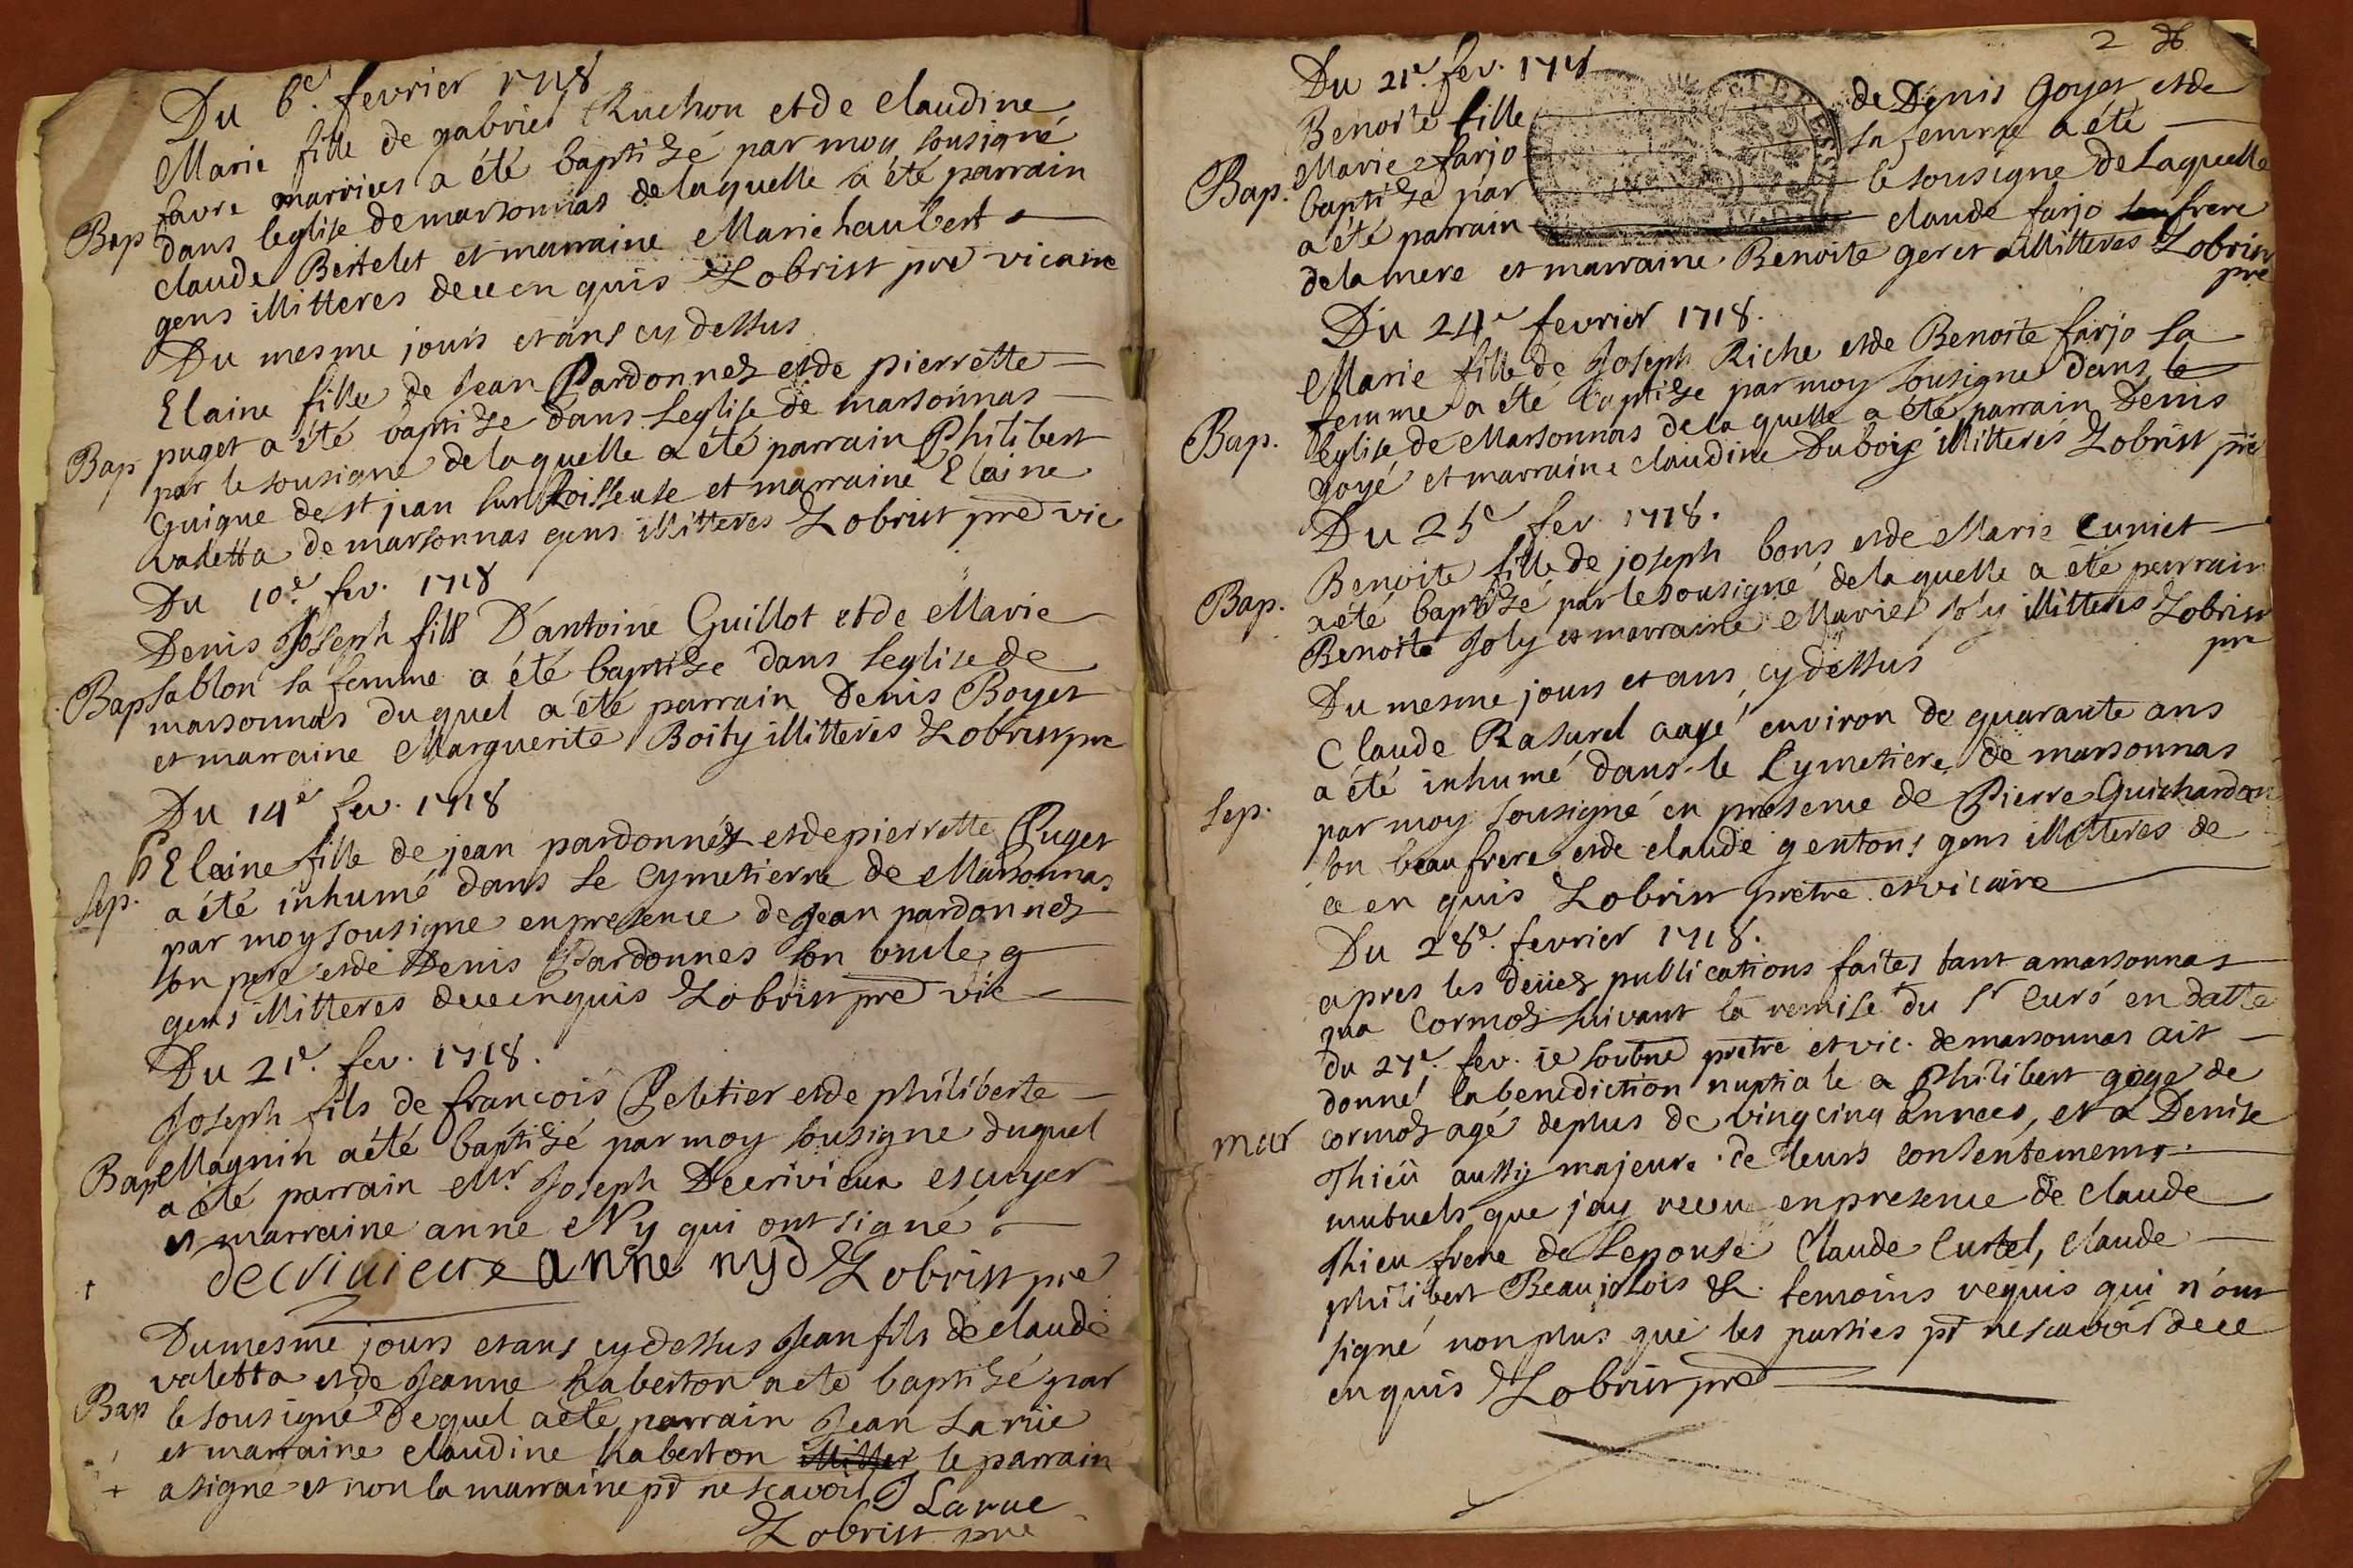 Du 6e. fevrier 1718
Marie fille de gabriel Ruchon et de claudine
favre marriees a été baptizé par moy sousigné
Bap dans leglise de marsonnas de laquelle a été parrain
claude Bertelet et marraine Marie haubert
gens illitteres de ce enquis Lobrist pre vicaire
Du mesme jours et ans cy dessus
Elaine fille de Jean Pardonnez et de pierrette
puget a été baptize dans leglise de marsonnas
Bap par le sousigne de laquelle a été parrain Philibert
Guigue de st jean sur Roisseuse et marraine Elaine
valetta de marsonnas gens illitteres Lobrist pre vic
Du 10e. fev. 1718
Denis Joseph fils D'antoine Guillot et de Marie
Bap sablon sa femme a été baptize dans leglise de
marsonnas duquel a été parrain Denis Boyer
et marraine Marguerite Boity illitteres Lobrist pre
Du 14e fev. 1718
Elaine fille de jean pardonnéz et de pierrette Puget
Sep. a été inhumé dans le Cymetierre de Marsonnas
par moy sousigne en presence de Jean pardonnez
son pere et de Denis Pardonnes son oncle g
gens illitteres de ce enquis Lobrist pre vic
Du 21e. fev. 1718.
Joseph fils de françois Peletier et de philiberte
Bap Magnin a été baptizé par moy sousigne duquel
a été parrain Mr. Joseph Decrivieux escuyer
et marraine anne Ny qui ont signé.
decrivieux anne nyd Lobrist pre
Du mesme jours et ans cy dessus Jean fils de claude
valetta et de Jeanne haberton a ete baptizé par
Bap le sousigne dequel a été parrain Jean Larüe
et marraine claudine haberton illitter le parrain
+ a signe et non la marraine pr ne scavoir J Larue
Lobrist pre
2
Du 21e. fev. 1718
Benoite fille de Denis Goyet et de
Marie farjo sa femme a été
Bap. baptize par le sousigne de laquelle
a été parrain claude farjo son frere
de la mere et marraine Benoite geret illitteres Lobrist
pre
Du 24e fevrier 1718.
Marie fille de Joseph Riche et de Benoite farjo sa
femme a été baptize par moy sousigne dans le
Bap. leglise de Marsonnas de la quelle a été parrain Denis
goyé et marraine claudine Dubois illitteres Lobrist pre
Du 25e fev. 1718.
Benoite fille de joseph bons et de Marie Cuniet
Bap. a été baptizé par le sousigné de laquelle a été parrain
Benoite Joly et marraine Marie Joly illitteres Lobrist
pre
Du mesme jours et ans cy dessus
Claude Rasurel aagé environ de quarante ans
a été inhumé dans le Cymetiere de marsonnas
Sep. par moy sousigné en presence de Pierre Guichardon
son beaufrere et de claude genton gens illitteres de
ce en quis Lobrist prêtre et vicaire
Du 28e. fevrier 1718.
apres les deüez publications faites tant a marsonnas
qua Cormoz suivant la remise du Sr Curé en datte
du 27e. fev. ie soubne prêtre et vic. de marsonnas ait
donné la benediction nuptiale a Philibert goge de
mar cormoz agé deplus de vingcinq années, et a Denise
Thieü aussy majeure de leurs consentements
mutuels que jay receu en presence de Claude
Thieu frere de Lepouse Claude Curtel, Claude
philibert Beaujolois &. temoins requis qui n'ont
signé non plus que les parties pr ne scavoir de ce
enquis Lobrist pre